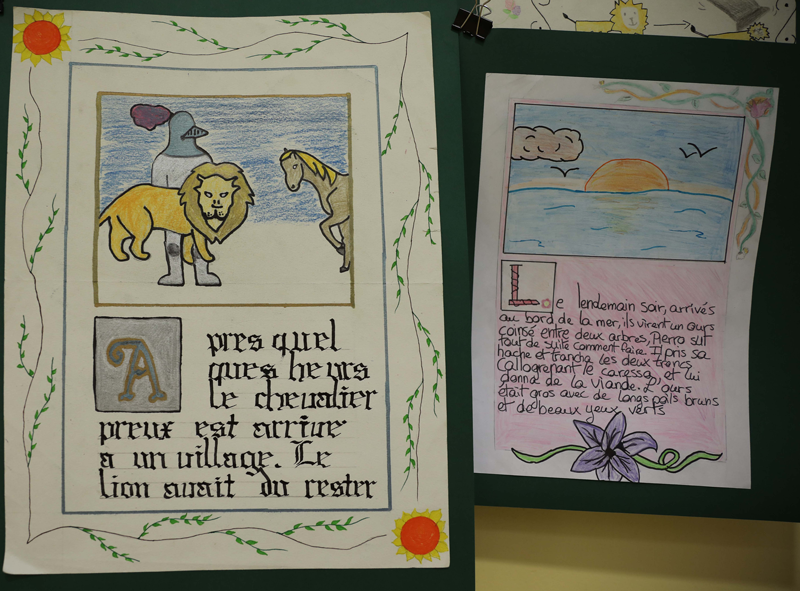 Apres quel
ques heurs
le chevalier
preux est arrive
a un village. Le
lion avait du rester
Le lendemain soir, arrivés
au bord de la mer, ils virent un ours
coinsé entre deux arbres, Pierro sut
tout de suite comment faire. Il pris sa
hache et trancha les deux troncs
Callogrenant le caressa, et lui
donna de la viande. L'ours
était gros avec de longs poils bruns
et de beaux yeux verts